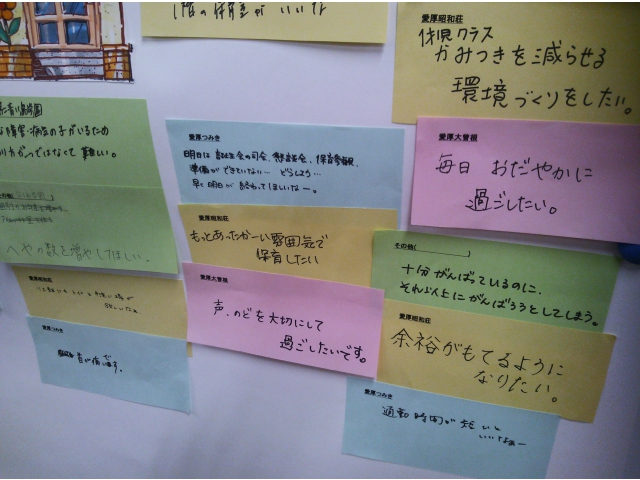 1階の保育室がいいな
愛厚昭和荘
1歳児クラス
かみつきを減らせる
環境づくりをしたい。
障害・病気の子がいるため
難しい。
へやの数を増やしてほしい。
愛厚つみき
明日は誕生会の司会、懇談会、保育参観、
準備ができていない… どうしよう…
早く明日が終わってほしいなー。
愛厚大曽根
毎日 おだやかに
過ごしたい。
愛厚昭和荘
もっとあったかーい雰囲気で
保育したい
その他( )
十分がんばっているのに、
それ以上にがんばろうとしてしまう。
愛厚大曽根
声、のどを大切にして
過ごしたいです。
愛厚昭和荘
愛厚昭和荘
余裕がもてるように
なりたい。
愛厚つみき
首が痛いです。
愛厚つみき
通勤時間が短いと
いいなぁー